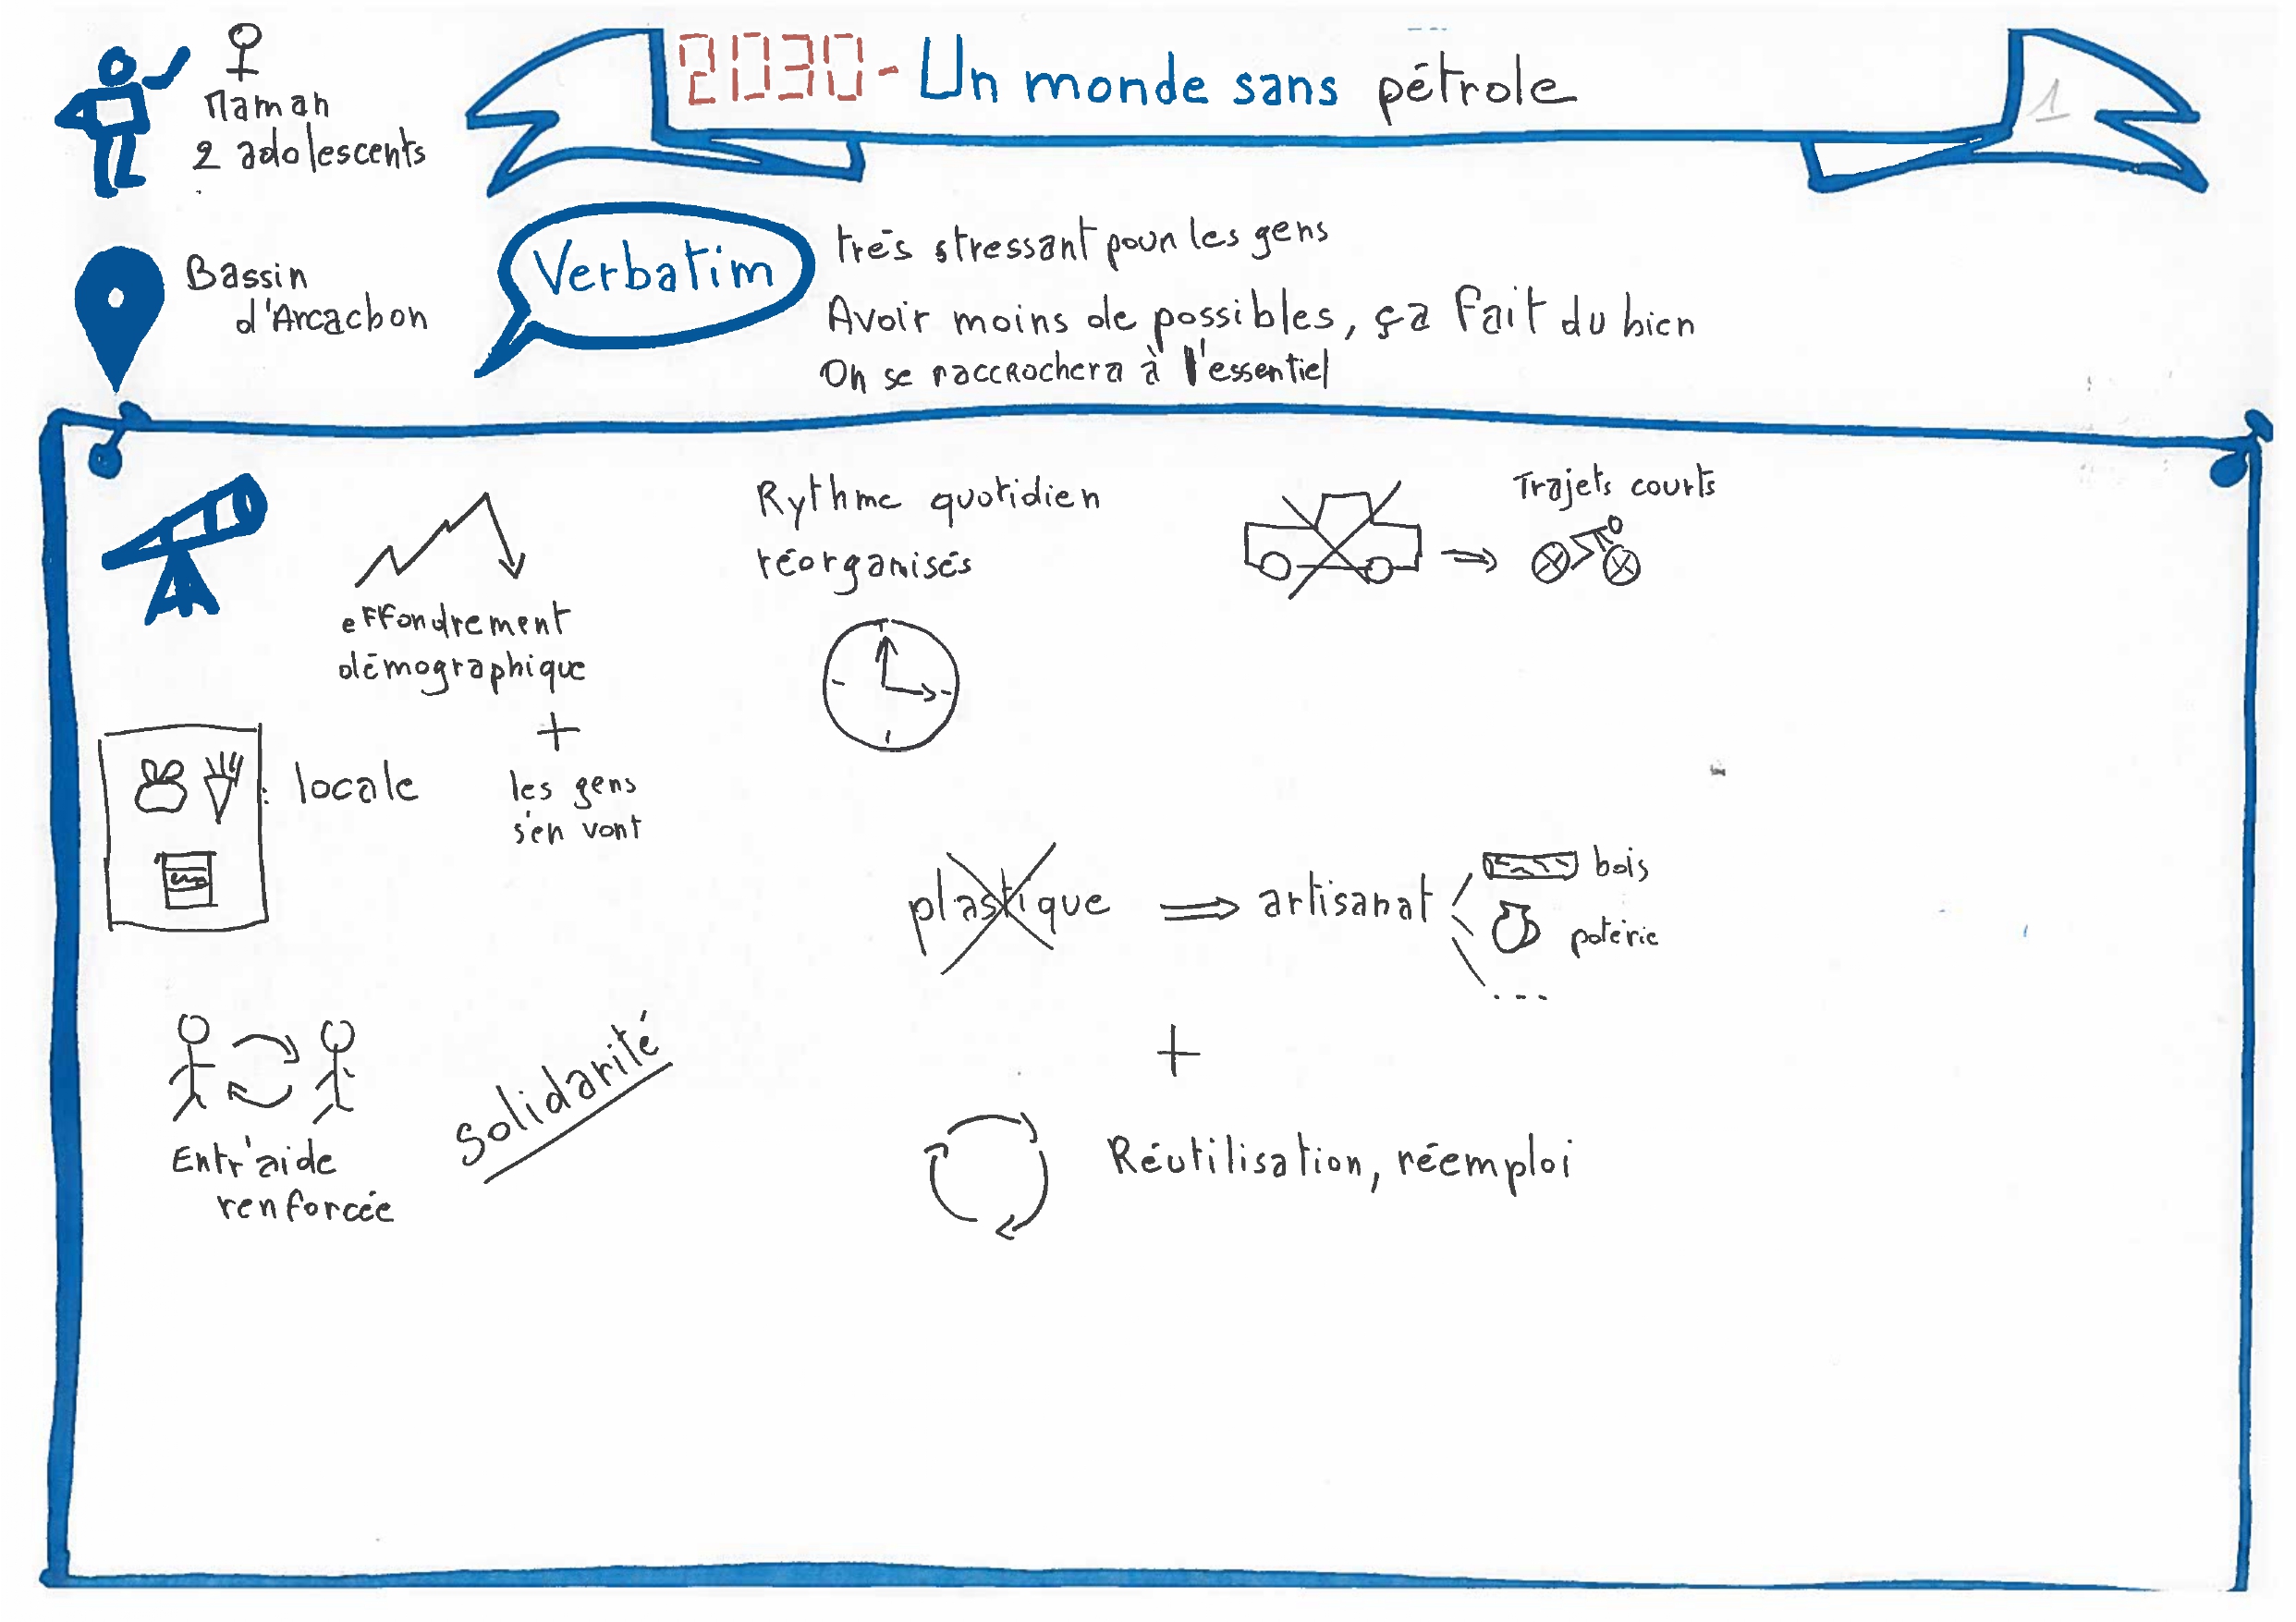 ♀
Maman
2 adolescents
2030 - Un monde sans pétrole
1
Bassin
d'Arcachon
Verbatim
très stressant pour les gens
Avoir moins de possibles, ça fait du bien
On se raccrochera à l'essentiel
effondrement
démographique
+
les gens
s'en vont
Rythme quotidien
réorganisés
Trajets courts
: locale
plastique ⇒ artisanat
bois
poterie
...
+
Réutilisation, réemploi
Entr'aide
renforcée
solidarité